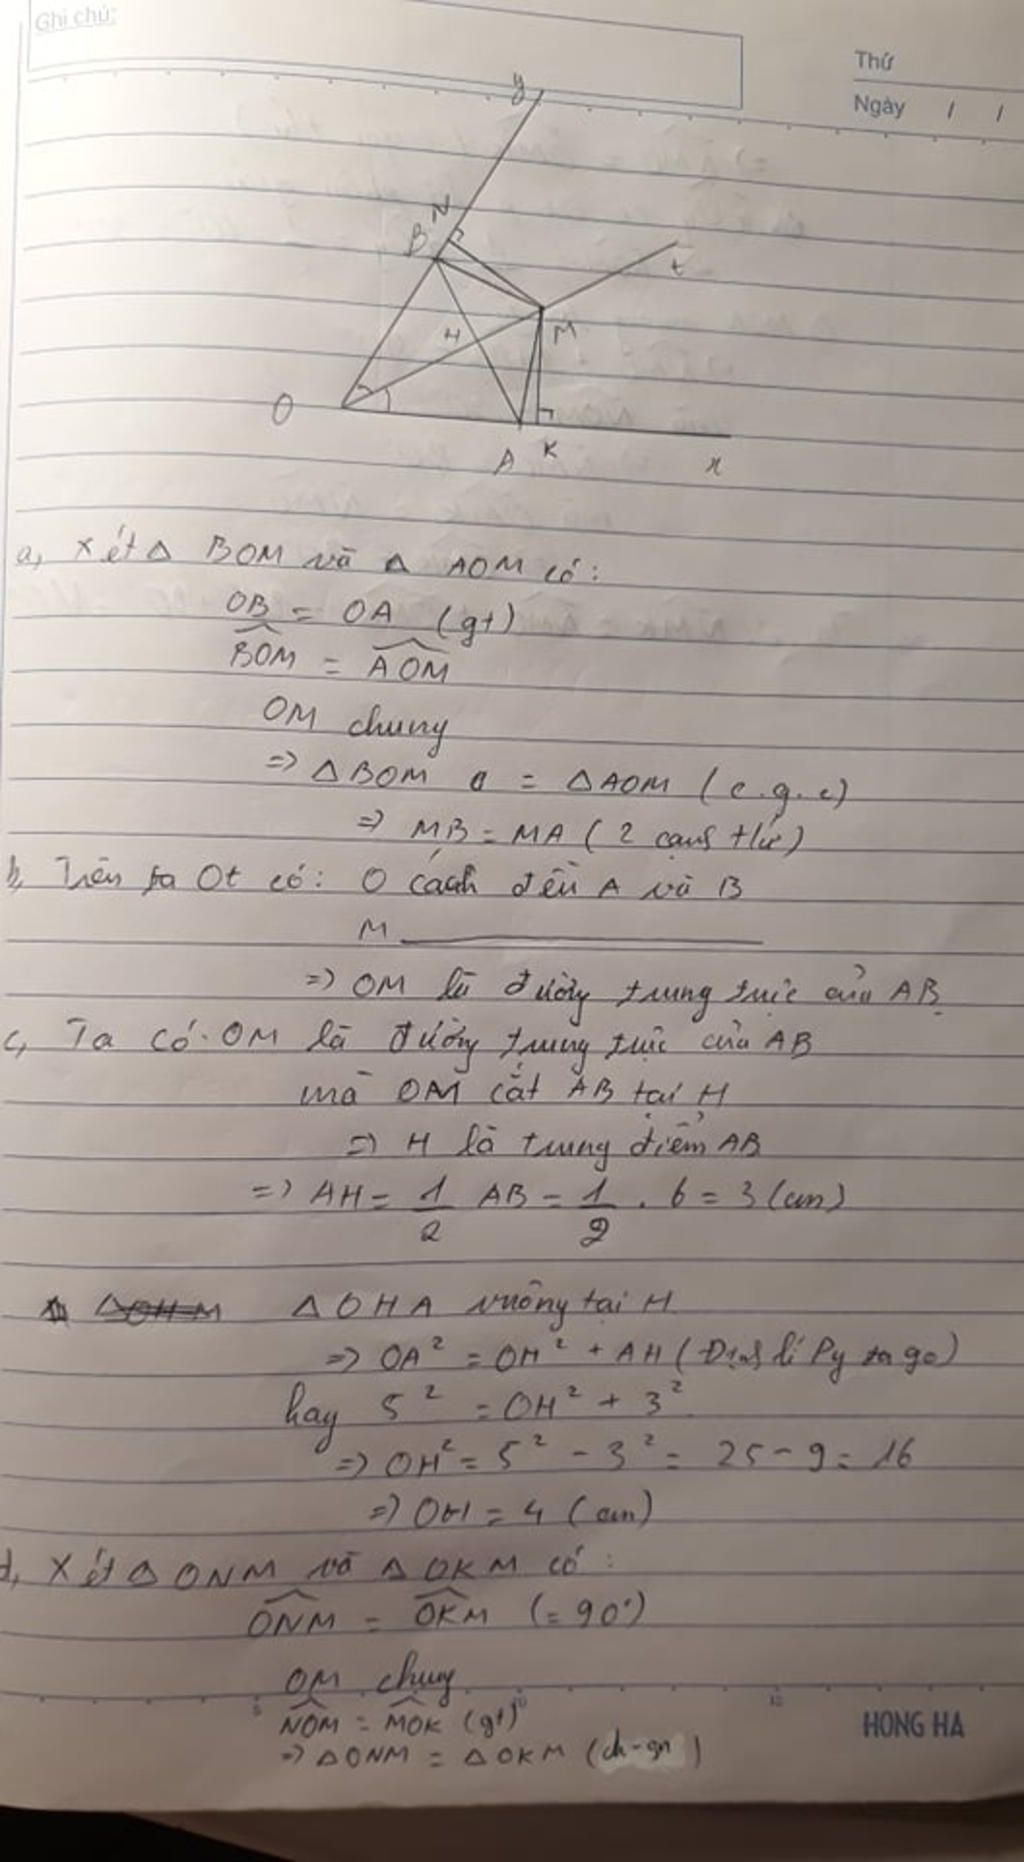 Ghi chú:
Thứ
Ngày / /
y
N
B
t
H
M
O
A K x
a, Xét Δ BOM và Δ AOM có:
OB = OA (gt)
BOM = AOM
OM chung
=> Δ BOM = Δ AOM (c.g.c)
=> MB = MA (2 cạnh t/ứ)
b, Trên tia Ot có: O cách đều A và B
M
=> OM là đường trung trực của AB
c, Ta có: OM là đường trung trực của AB
mà OM cắt AB tại H
=> H là trung điểm AB
=> AH = 1/2 AB = 1/2 . 6 = 3 (cm)
Δ OHM Δ OHA vuông tại H
=> OA² = OH² + AH (Định lí Py ta go)
hay 5² = OH² + 3²
=> OH² = 5² - 3² = 25 - 9 = 16
=> OH = 4 (cm)
d, Xét Δ ONM và Δ OKM có:
ONM = OKM (= 90°)
OM chung
NOM = MOK (gt)
=> Δ ONM = Δ OKM (ch-gn)
5 10 15
HONG HA